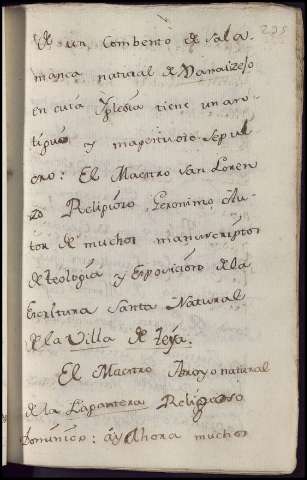 225
de un Combento de Sala-
manca natural de Manaizejo
en cuia Yglesia tiene un an-
tiguo y magentuoso sepul
cro: El Maestro San Loren
zo Religioso Geronimo Au-
tor de muchos manuscriptos
de teologia y Exposicion de la
Escritura Santa Natural
de la Villa de Zeya.
El Maestro Arroyo natural
de la Lapantera Religioso
Dominico: ay Ahora muchos